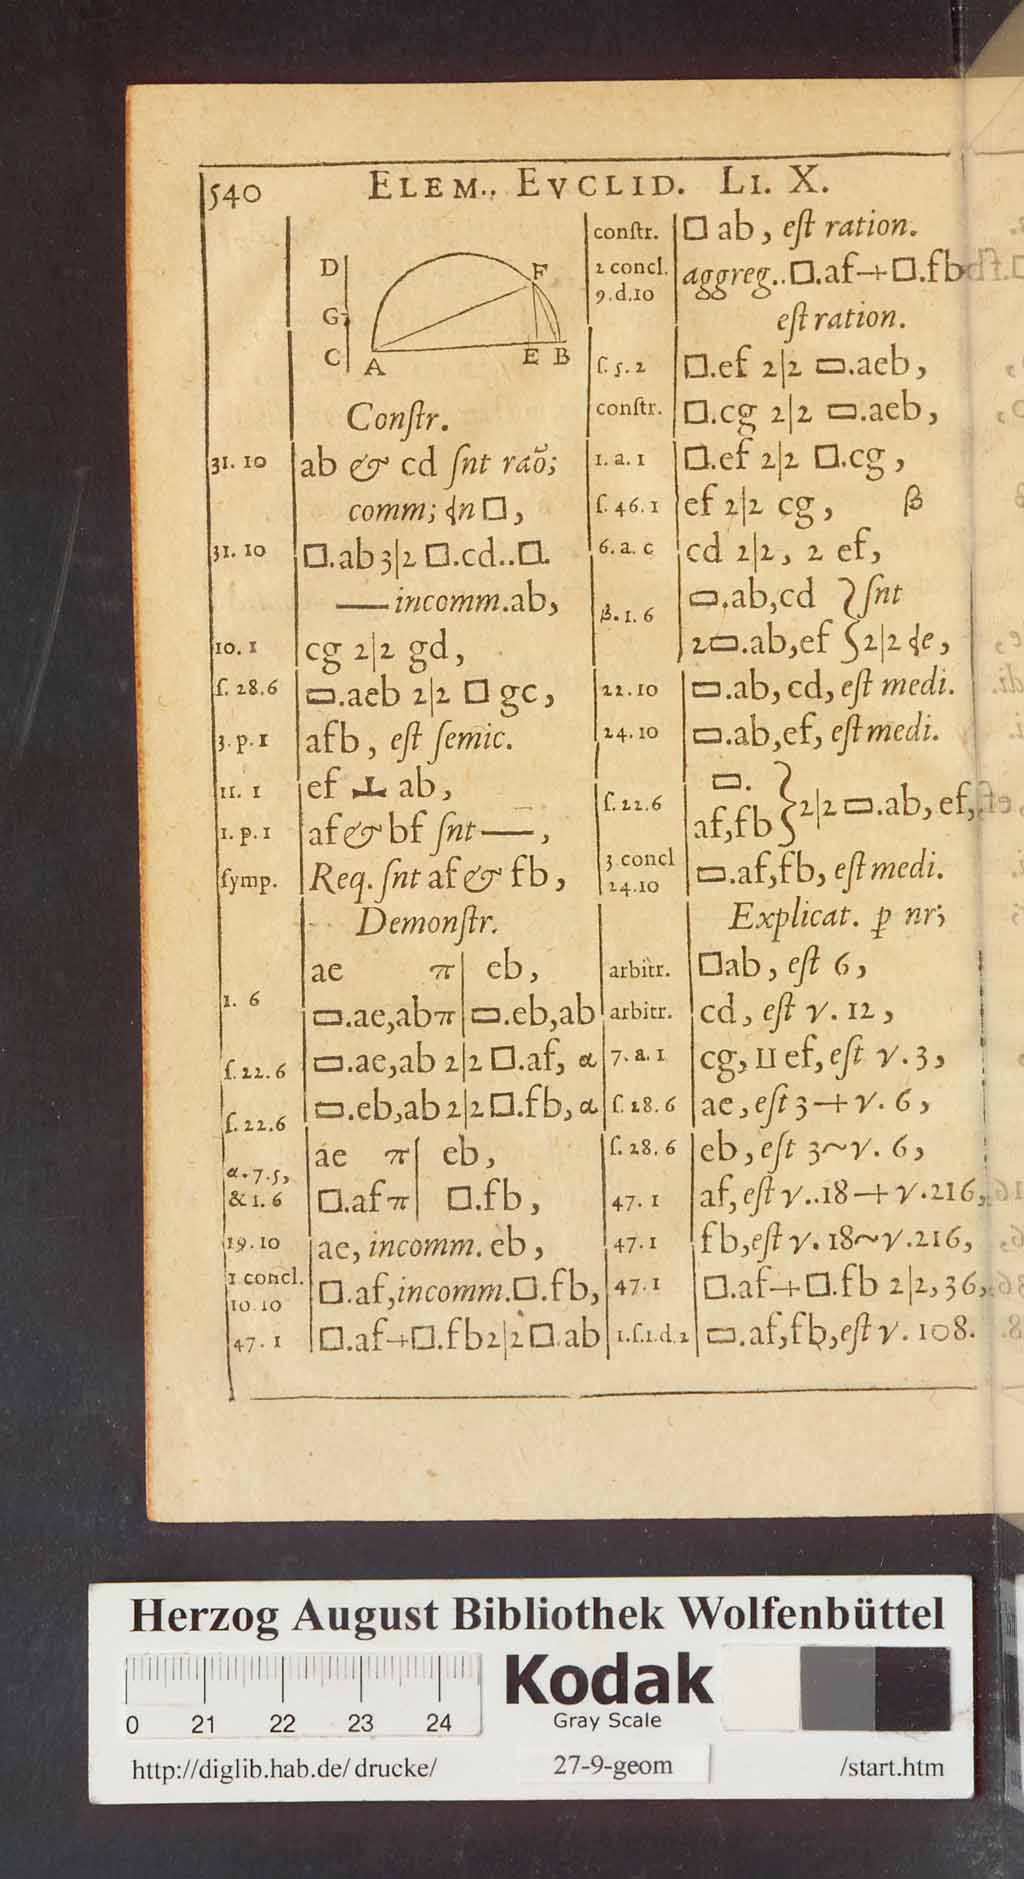 540 ELEM., EVCLID. LI. X.
D
G
C
A
F
E B
Constr.
31. 10 ab & cd ſnt raõ;
comm; ⵃn □,
31. 10 □.ab 3|2 □.cd..□.
— incomm.ab,
10. 1 cg 2|2 gd,
ſ. 28.6 ▭.aeb 2|2 □ gc,
3. p. 1 afb, eſt ſemic.
11. 1 ef ⊥ ab,
1. p. 1 af & bf ſnt —,
ſymp. Req. ſnt af & fb,
Demonſtr.
ae π| eb,
1. 6 ▭.ae,ab π| ▭.eb,ab
ſ. 22. 6 ▭.ae,ab 2|2 □.af, α
ſ. 22. 6 ▭.eb,ab 2|2 □.fb, α
ae π| eb,
α. 7. 5,
& 1. 6 □.af π| □.fb,
19. 10 ae, incomm. eb,
1 concl.
10. 10 □.af, incomm. □.fb,
47. 1 □.af+□.fb 2|2 □.ab
conſtr. □ ab, eſt ration.
2 concl.
9. d. 10 aggreg..□.af+□.fb
eſt ration.
ſ. 5. 2 □.ef 2|2 ▭.aeb,
conſtr. □.cg 2|2 ▭.aeb,
1. a. 1 □.ef 2|2 □.cg,
ſ. 46. 1 ef 2|2 cg, β
6. a. c cd 2|2, 2 ef,
β. 1. 6 ▭.ab,cd } ſnt
2▭.ab,ef } 2|2 ⵃe,
22. 10 ▭.ab, cd, eſt medi.
24. 10 ▭.ab,ef, eſt medi.
ſ. 22. 6 ▭.
af,fb } 2|2 ▭.ab, ef,
3 concl
24. 10 ▭.af,fb, eſt medi.
Explicat. ꝑ nr;
arbitr. □ab, eſt 6,
arbitr. cd, eſt γ. 12,
7. a. 1 cg, II ef, eſt γ. 3,
ſ. 28. 6 ae, eſt 3+γ. 6,
ſ. 28. 6 eb, eſt 3~γ. 6,
47. 1 af, eſt γ..18+γ.216,
47. 1 fb, eſt γ. 18~γ.216,
47. 1 □.af+□.fb 2|2, 36,
1. ſ. 1. d. 2 ▭.af,fb, eſt γ. 108.
Herzog August Bibliothek Wolfenbüttel
0 21 22 23 24
Kodak
Gray Scale
http://diglib.hab.de/drucke/ 27-9-geom /start.htm